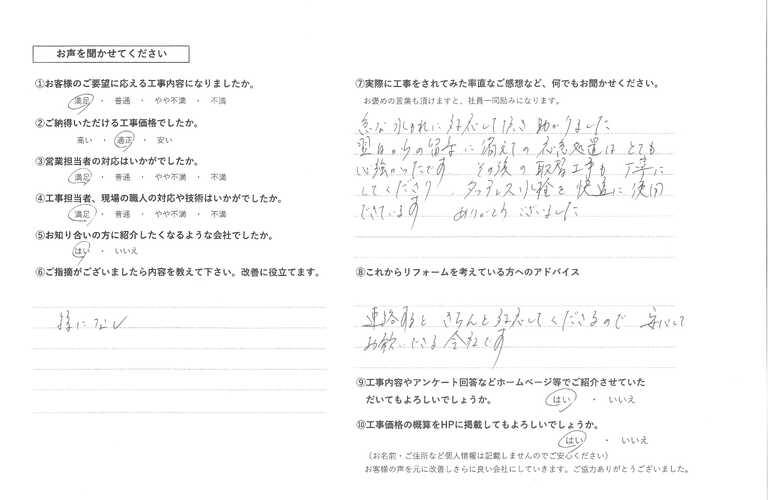 お声を聞かせてください
①お客様のご要望に応える工事内容になりましたか。
満足 ・ 普通 ・ やや不満 ・ 不満
②ご納得いただける工事価格でしたか。
高い ・ 適正 ・ 安い
③営業担当者の対応はいかがでしたか。
満足 ・ 普通 ・ やや不満 ・ 不満
④工事担当者、現場の職人の対応や技術はいかがでしたか。
満足 ・ 普通 ・ やや不満 ・ 不満
⑤お知り合いの方に紹介したくなるような会社でしたか。
はい ・ いいえ
⑥ご指摘がございましたら内容を教えて下さい。改善に役立てます。
特になし
⑦実際に工事をされてみた率直なご感想など、何でもお聞かせください。
お褒めの言葉も頂けますと、社員一同励みになります。
急な水もれに対応して頂き 助かりました
翌日からの留守に備えての応急処置は とても
心強かったです その後の取替工事も 丁寧に
してくださり、タッチレス水栓を快適に使用
できています ありがとうございました
⑧これからリフォームを考えている方へのアドバイス
連絡すると きちんと対応してくださるので 安心して
お願いできる会社です
⑨工事内容やアンケート回答などホームページ等でご紹介させていた
だいてもよろしいでしょうか。 はい ・ いいえ
⑩工事価格の概算をHPに掲載してもよろしいでしょうか。
はい ・ いいえ
（お名前・ご住所など個人情報は記載しませんのでご安心ください）
お客様の声を元に改善しさらに良い会社にしていきます。ご協力ありがとうございました。